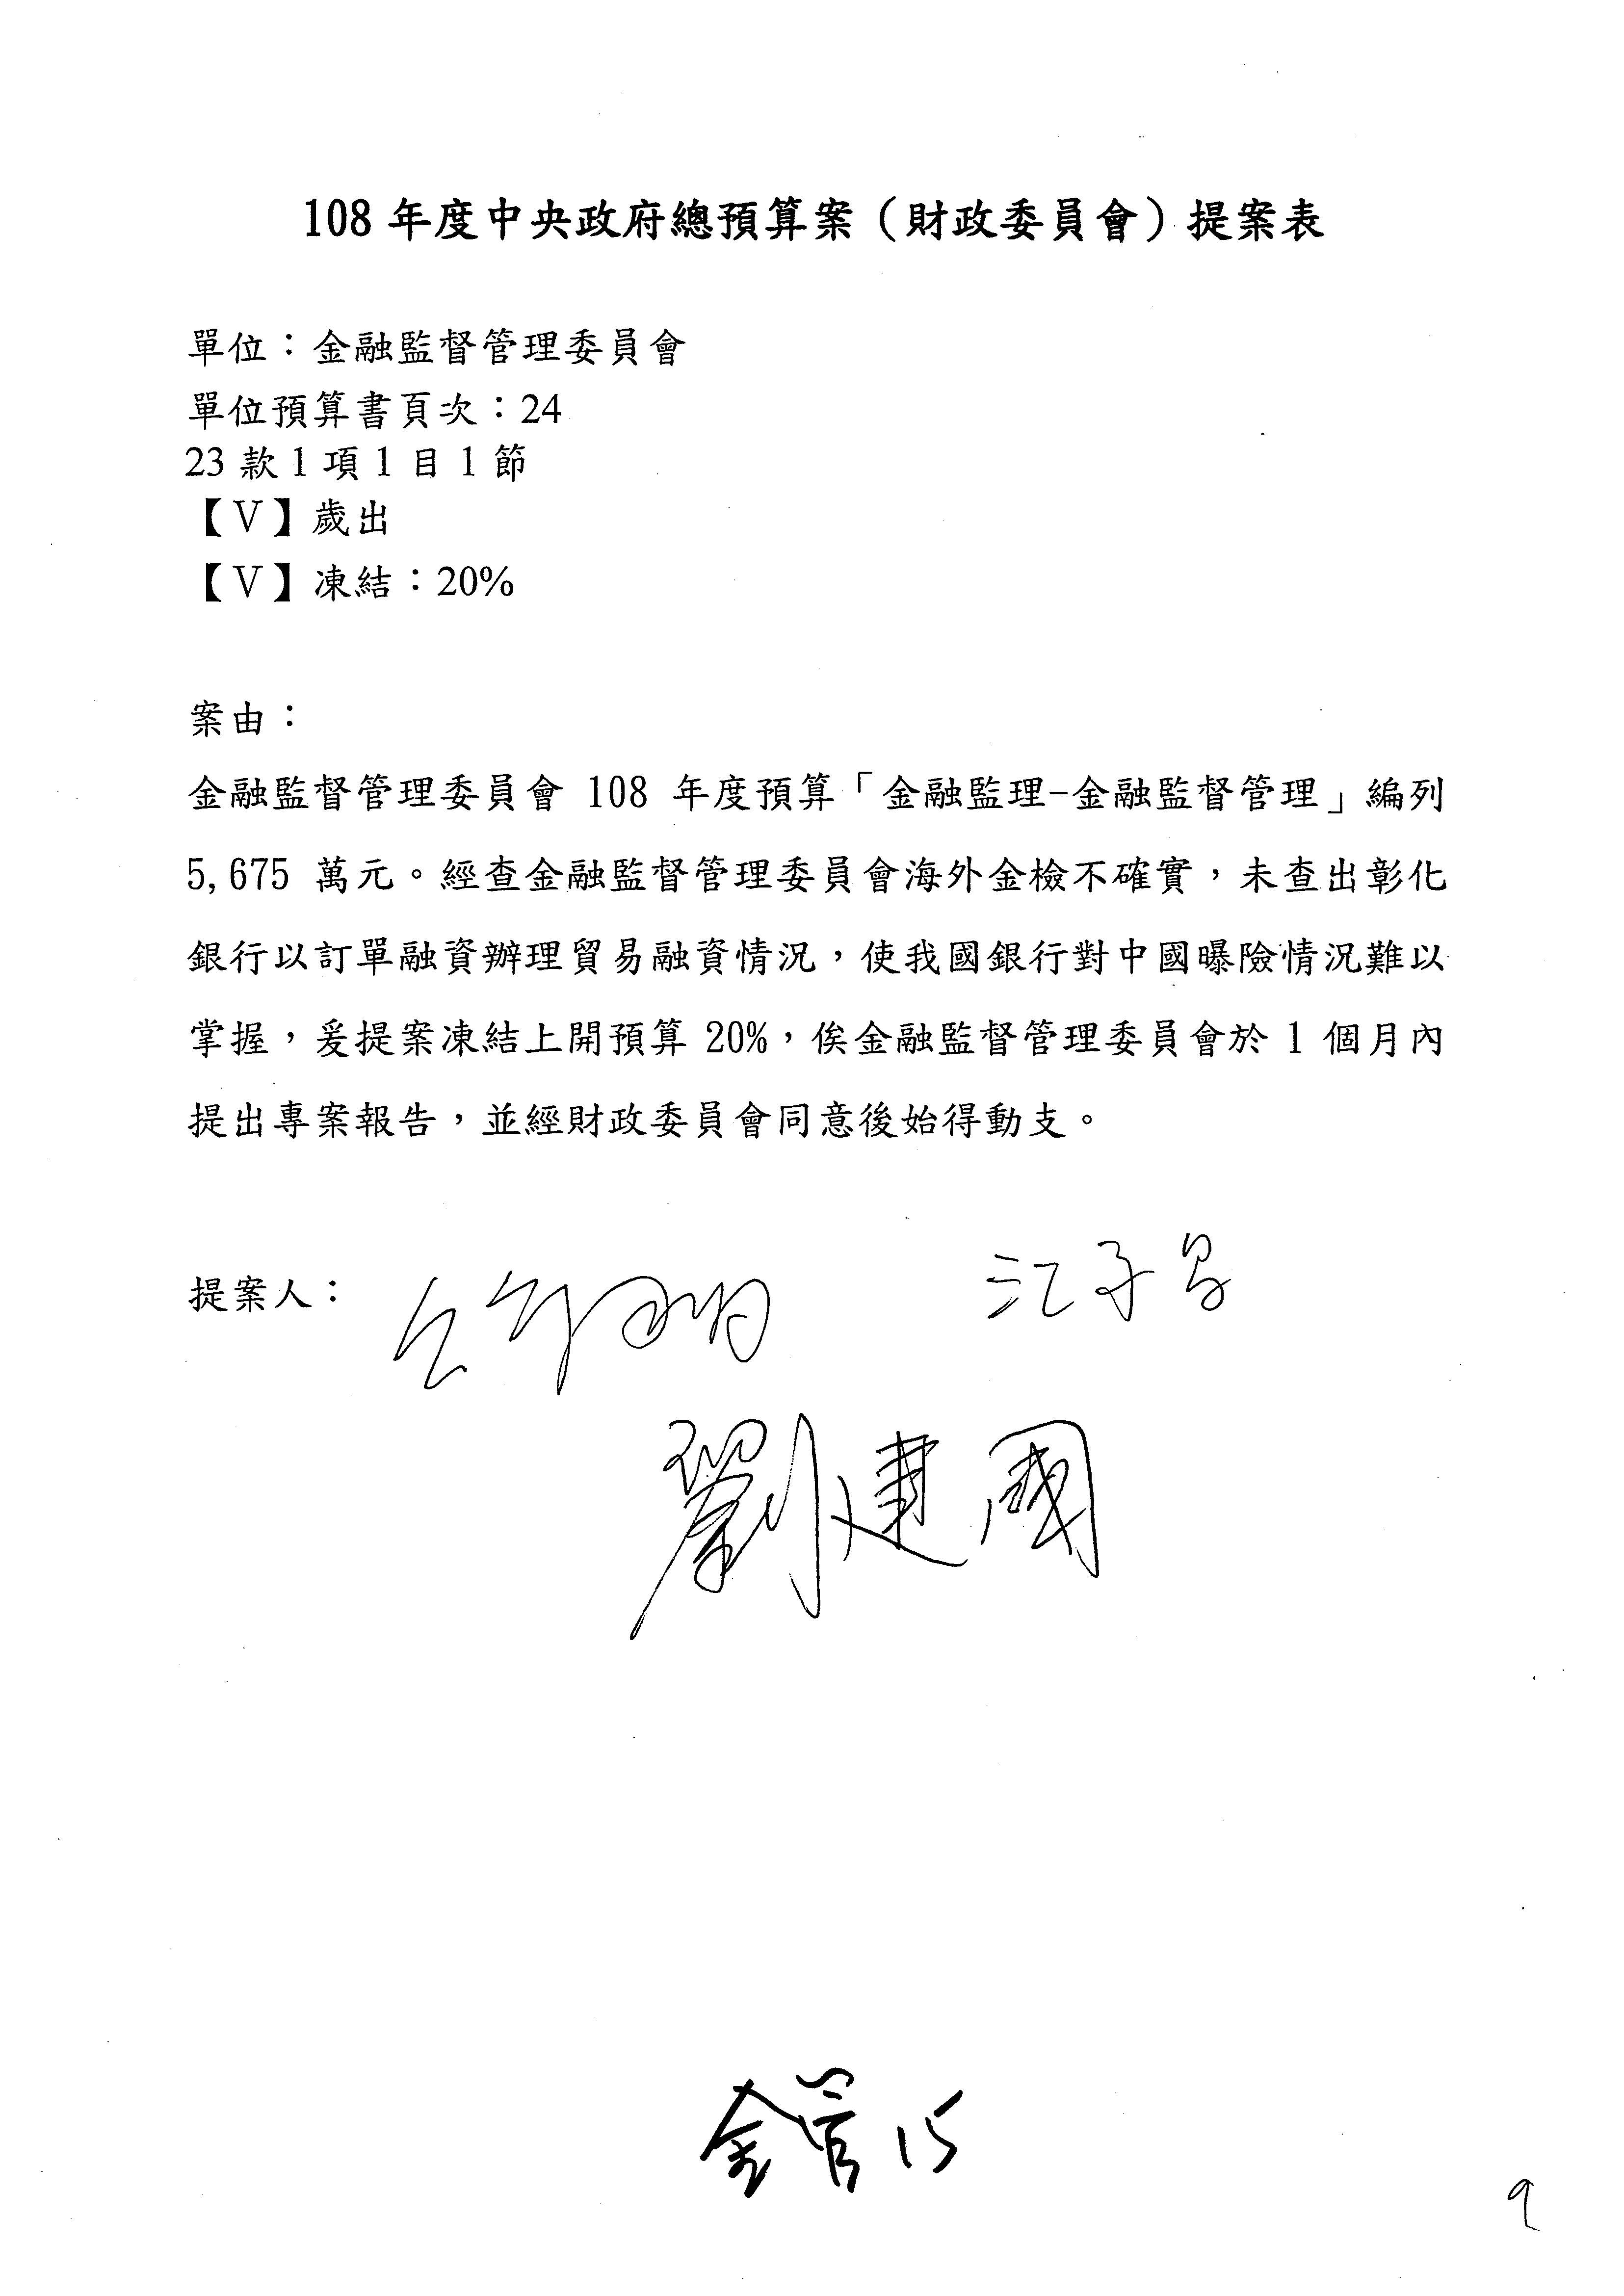 108 年度中央政府總預算案（財政委員會）提案表
單位：金融監督管理委員會
單位預算書頁次：24
23 款 1 項 1 目 1 節
【V】歲出
【V】凍結：20%
案由：
金融監督管理委員會 108 年度預算「金融監理-金融監督管理」編列
5,675 萬元。經查金融監督管理委員會海外金檢不確實，未查出彰化
銀行以訂單融資辦理貿易融資情況，使我國銀行對中國曝險情況難以
掌握，爰提案凍結上開預算 20%，俟金融監督管理委員會於 1 個月內
提出專案報告，並經財政委員會同意後始得動支。
提案人：
劉建國
金管 15
9